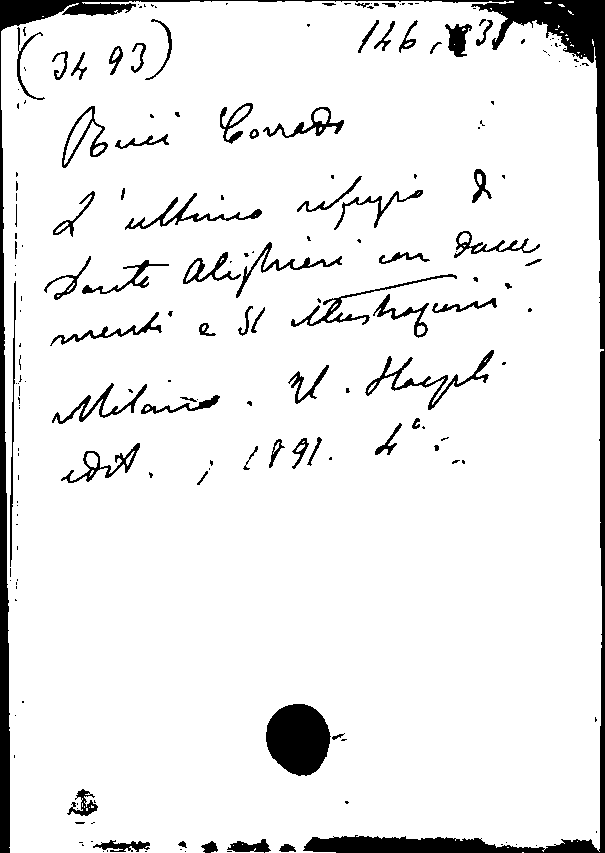 (3493) 146, 31.
Ricci Corrado
L'ultimo rifugio di
Dante Alighieri con docu-
menti e 51 illustrazioni.
Milano. U. Hoepli
edit. ; 1891. 4°.